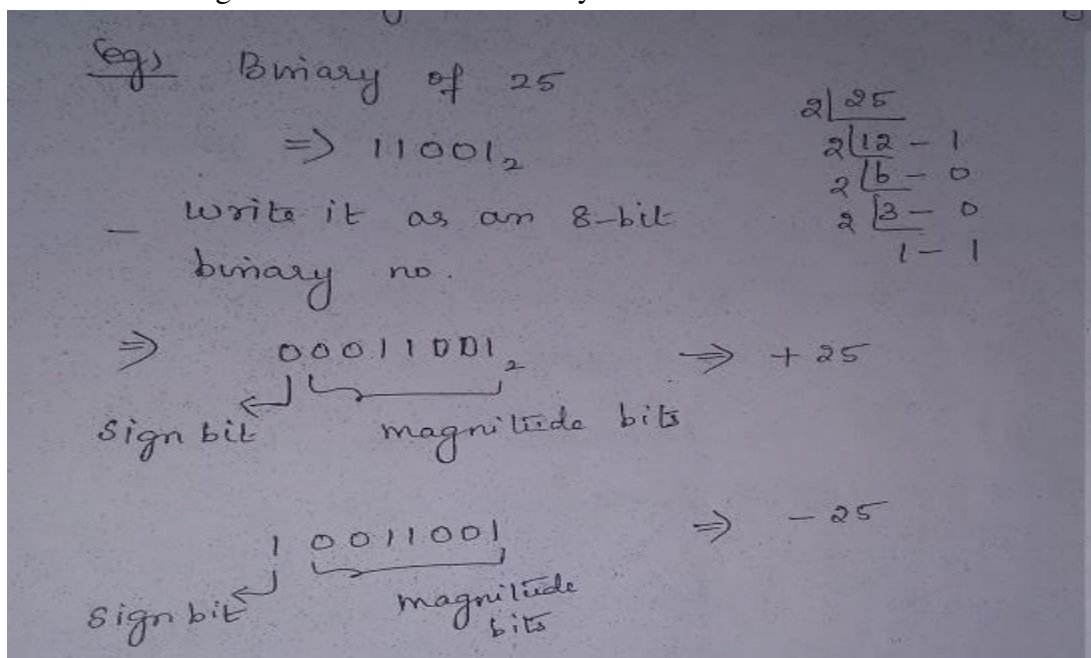 (eg) Binary of 25
⇒ 11001₂
2 | 25
2 | 12 - 1
2 | 6 - 0
2 | 3 - 0
1 - 1
- Write it as an 8-bit
binary no.
⇒ 00011001₂ ⇒ + 25
Sign bit magnitude bits
1 0011001 ⇒ - 25
Sign bit magnitude
bits